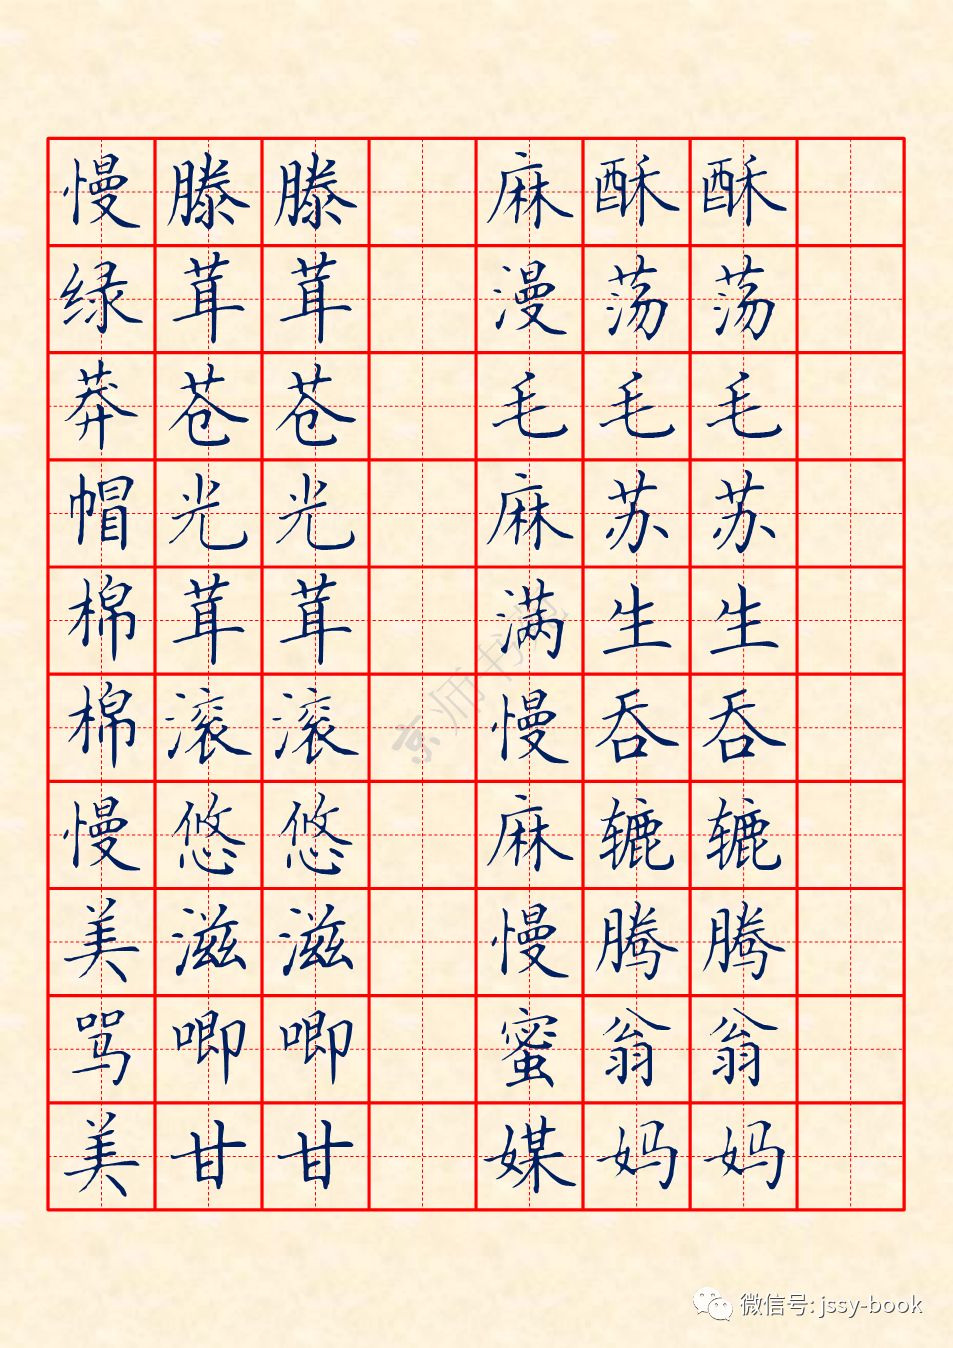 慢滕滕 麻酥酥
绿茸茸 漫荡荡
莽苍苍 毛毛毛
帽光光 麻苏苏
棉茸茸 满生生
棉滚滚 慢吞吞
慢悠悠 麻辘辘
美滋滋 慢腾腾
骂唧唧 蜜翁翁
美甘甘 媒妈妈
京师书苑
微信号: jssy-book